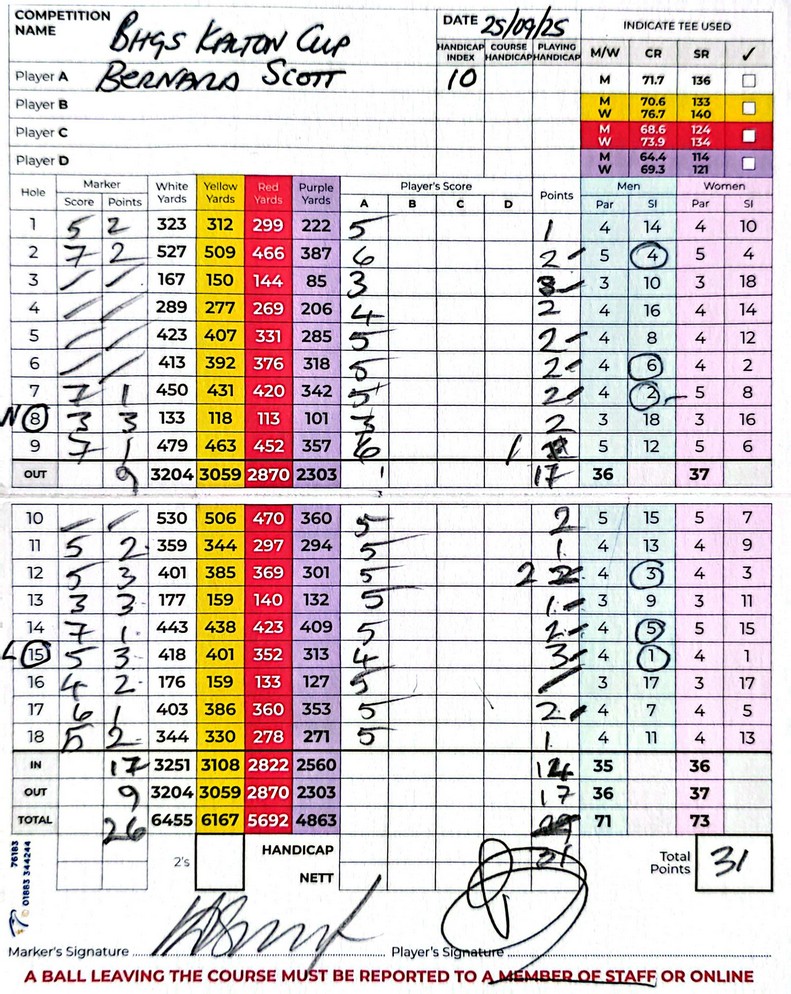 COMPETITION NAME BHGS KALTON CUP DATE 25/09/25 INDICATE TEE USED
HANDICAP INDEX COURSE HANDICAP PLAYING HANDICAP M/W CR SR ✓
Player A BERNARD SCOTT 10 M 71.7 136
Player B M 70.6 133
W 76.7 140
Player C M 68.6 124
W 73.9 134
Player D M 64.4 114
W 69.3 121
Hole Marker White Yards Yellow Yards Red Yards Purple Yards Player's Score Points Men Women
Score Points A B C D Par SI Par SI
1 5 2 323 312 299 222 5 1 4 14 4 10
2 7 2 527 509 466 387 6 2 5 4 5 4
3 / / 167 150 144 85 3 3 3 10 3 18
4 / / 289 277 269 206 4 2 4 16 4 14
5 / / 423 407 331 285 5 2 4 8 4 12
6 / / 413 392 376 318 5 2 4 6 4 2
7 7 1 450 431 420 342 5 2 4 2 5 8
N 8 3 3 133 118 113 101 3 2 3 18 3 16
9 7 1 479 463 452 357 6 1 5 12 5 6
OUT 9 3204 3059 2870 2303 17 36 37
10 / / 530 506 470 360 5 2 5 15 5 7
11 5 2 359 344 297 294 5 1 4 13 4 9
12 5 3 401 385 369 301 5 2 2 4 3 4 3
13 3 3 177 159 140 132 5 1 3 9 3 11
14 7 1 443 438 423 409 5 2 4 5 5 15
L 15 5 3 418 401 352 313 4 3 4 1 4 1
16 4 2 176 159 133 127 5 / 3 17 3 17
17 6 1 403 386 360 353 5 2 4 7 4 5
18 5 2 344 330 278 271 5 1 4 11 4 13
IN 17 3251 3108 2822 2560 14 35 36
OUT 9 3204 3059 2870 2303 17 36 37
TOTAL 26 6455 6167 5692 4863 71 73
2's HANDICAP 31 Total Points 31
NETT
76183
01883 344244
Marker's Signature Player's Signature
A BALL LEAVING THE COURSE MUST BE REPORTED TO A MEMBER OF STAFF OR ONLINE